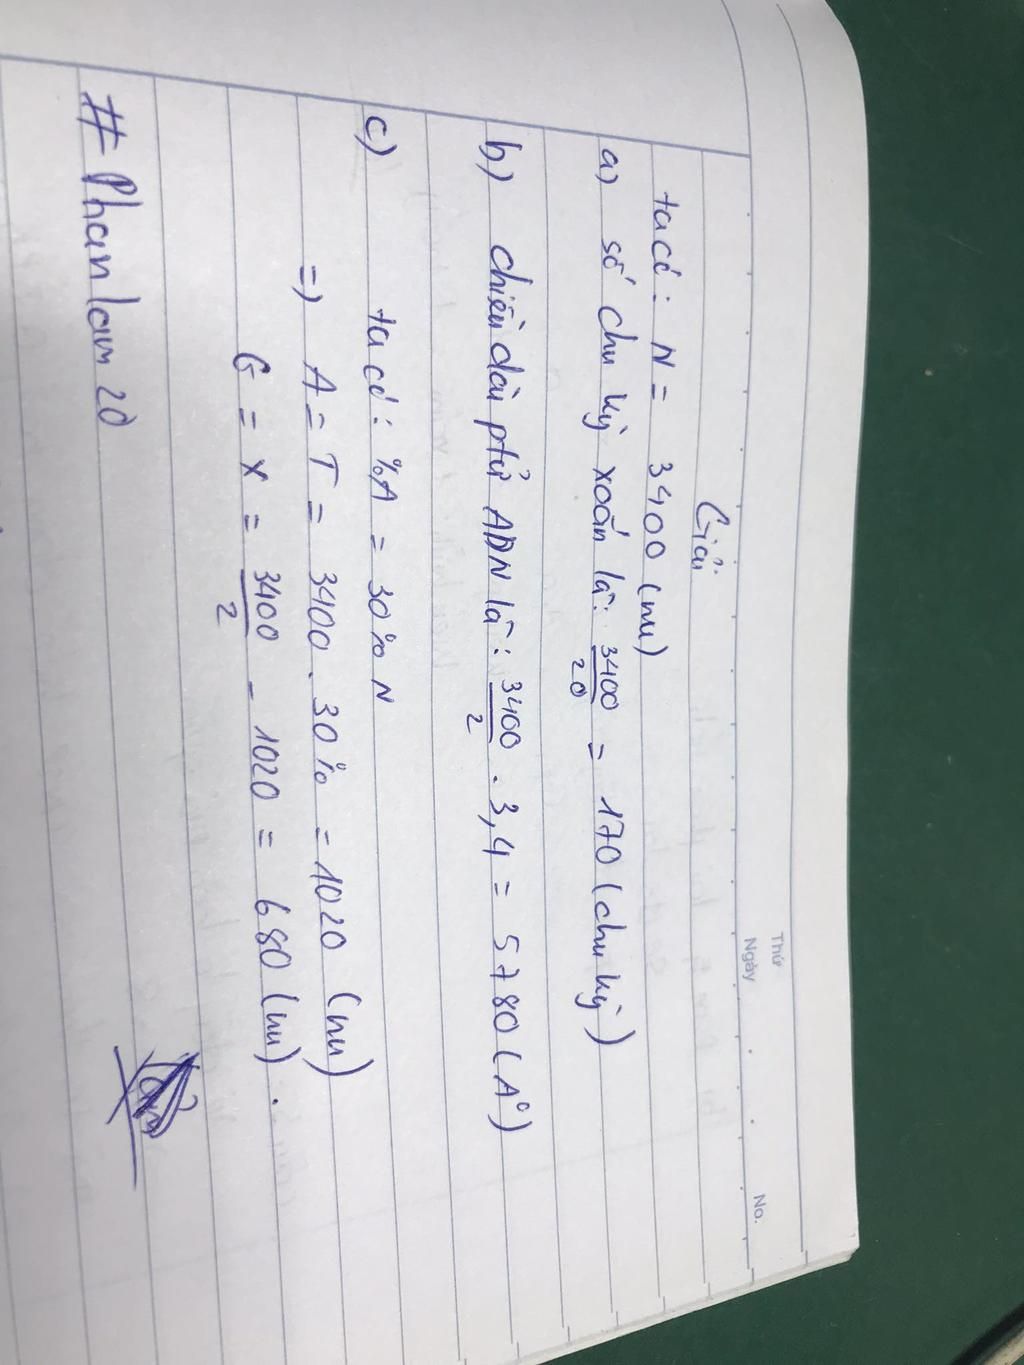 Thứ
Ngày
No.
Giải
ta có: N = 3400 (nu)
a) số chu kỳ xoắn là: 3400/20 = 170 (chu kỳ)
b) chiều dài ptử ADN là: 3400/2 . 3,4 = 5780 (A°)
c) ta có: %A = 30% N
=) A = T = 3400 . 30% = 1020 (nu)
G = X = 3400/2 - 1020 = 680 (nu).
# Phanlam20